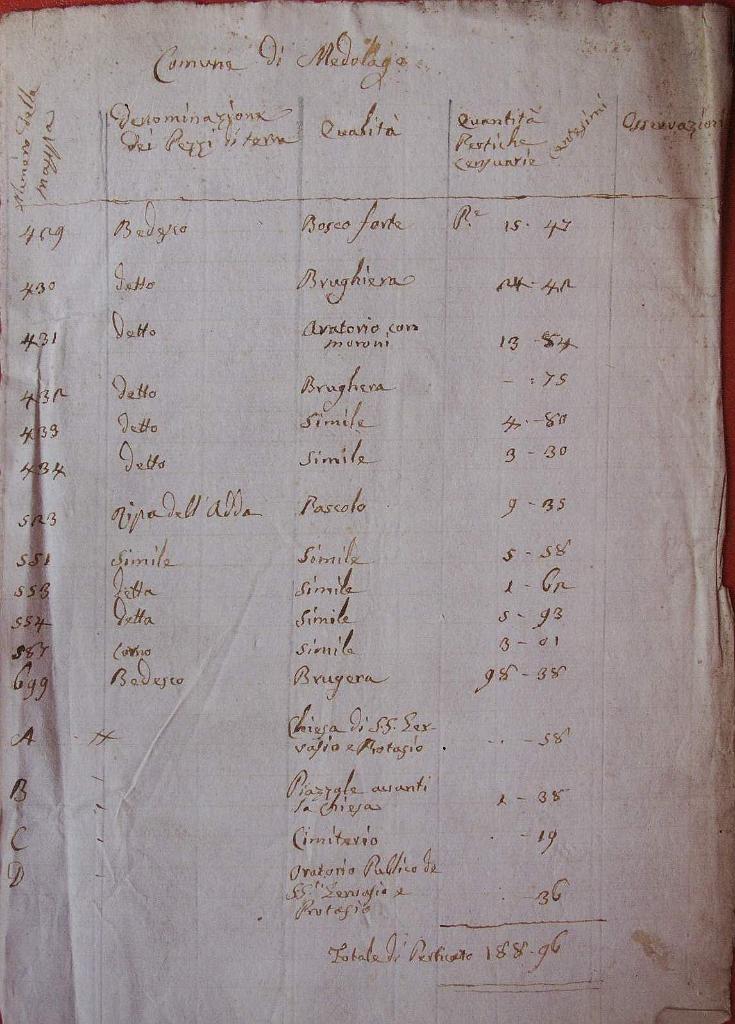 Comune di Medolago
Denominazione
dei Pezzi di terra
Qualità
Quantità
Pertiche
Censuarie
Centesimi
Osservazion
429 Bedesco Bosco forte P.e 15 - 47
430 detto Brughiera 24 - 42
431 detto Aratorio con
moroni 13 - 84
432 detto Brughera - : 75
433 detto Simile 4 - 80
434 detto Simile 3 - 30
523 Ripa dell'Adda Pascolo 9 - 35
551 Simile Simile 5 - 58
553 detta Simile 1 - 62
554 detta Simile 5 - 93
587 Corno Simile 3 - 01
699 Bedesco Brugera 98 - 38
A Chiesa di SS. Ger-
vasio e Protasio - 58
B Piazzale avanti
la chiesa 1 - 38
C Cimiterio - 19
D Oratorio Publico de
SS.ti Gervasio e
Protasio - 36
Totale di Perticato 188 - 96